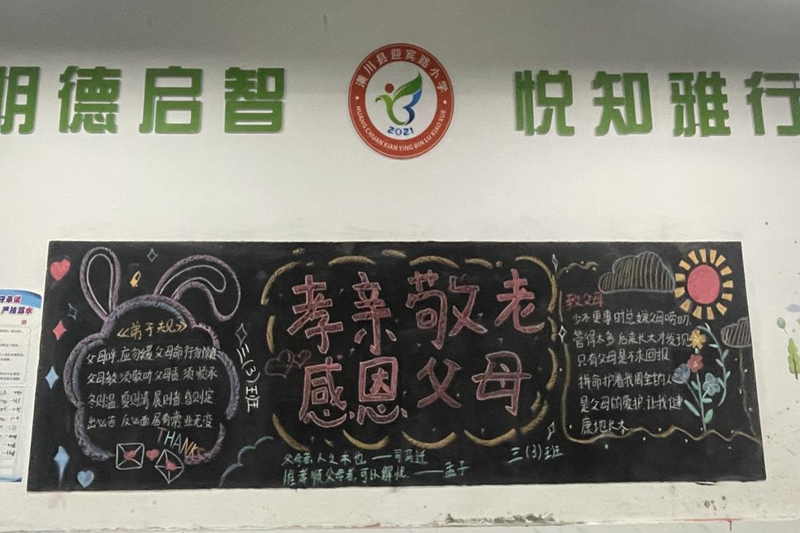 明德启智
悦知雅行
潢川县迎宾路小学
2021
HUANG CHUAN XIAN YING BIN LU XIAO XUE
孝亲敬老
感恩父母
《弟子规》
父母呼 应勿缓 父母命 行勿懒
父母教 须敬听 父母责 须顺承
冬则温 夏则凊 晨则省 昏则定
出必告 反必面 居有常 业无变
THANKS
三(3)班
父母者,人之本也 ——司马迁
惟孝顺父母者,可以解忧 ——孟子
三(3)班
致父母
少不更事时总嫌父母唠叨,
管得太多 后来长大才发现
只有父母是不求回报
拼命护着我 周全的人
是父母的爱护 让我们健
康地长大